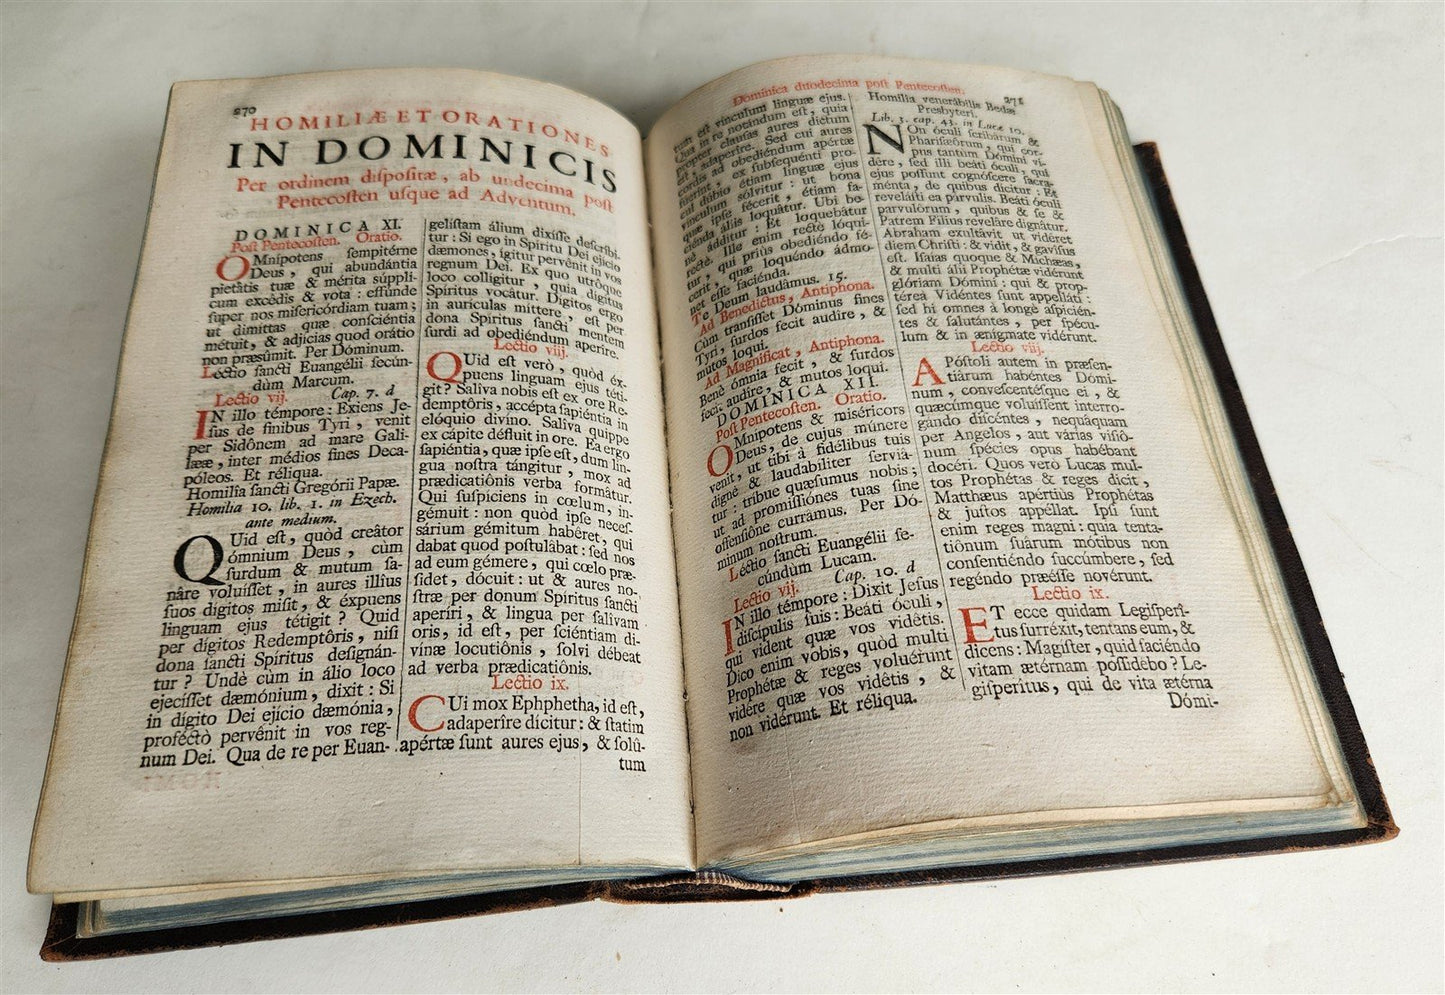 270
HOMILIÆ ET ORATIONES
IN DOMINICIS
Per ordinem dispositæ, ab undecima post
Pentecosten usque ad Adventum.
DOMINICA XI.
Post Pentecosten. Oratio.
OMnipotens sempitérne
Deus, qui abundántia
pietâtis tuæ & mérita súppli-
cum excédis & vota: effúnde
super nos misericórdiam tuam;
ut dimíttas quæ consciéntia
métuit, & adjícias quod orátio
non præsûmit. Per Dóminum.
Léctio sancti Euangélii secún-
dùm Marcum.
Lectio vij. Cap. 7. d
IN illo témpore: Exiens Je-
sus de fínibus Tyri, venit
per Sidônem ad mare Gali-
lææ, inter médios fines Deca-
póleos. Et réliqua.
Homília sancti Gregórii Papæ.
Homilia 10. lib. 1. in Ezech.
ante medium.
QUid est, quòd creâtor
ómnium Deus, cùm
surdum & mutum sa-
nâre voluisset, in aures illíus
suos dígitos misit, & éxpuens
linguam ejus tétigit? Quid
per dígitos Redemptôris, nisi
dona sancti Spíritus designán-
tur? Undè cùm in álio loco
ejecísset dæmónium, dixit: Si
in dígito Dei ejício dæmónia,
proféctò pervênit in vos reg-
num Dei. Qua de re per Euan-
gelístam álium dixísse descríbi-
tur: Si ego in Spíritu Dei ejício
dæmones, ígitur pervênit in vos
regnum Dei. Ex quo utrôque
loco collígitur, quia dígitus
Spíritus vocâtur. Dígitos ergo
in aurículas míttere, est per
dona Spíritus sancti mentem
surdi ad obediéndum aperíre.
Lectio viij.
QUid est verò, quòd éx-
puens linguam ejus téti-
git? Salíva nobis est ex ore Re-
demptôris, accépta sapiéntia in
elóquio divíno. Salíva quippe
ex cápite défluit in ore. Ea ergo
sapiéntia, quæ ipse est, dum lin-
gua nostra tángitur, mox ad
prædicatiônis verba formâtur.
Qui suspíciens in cœlum, in-
gémuit: non quòd ipse neces-
sárium gémitum habêret, qui
dabat quod postulâbat: sed nos
ad eum gémere, qui cœlo præ-
sidet, dócuit: ut & aures no-
stræ per donum Spíritus sancti
aperíri, & lingua per salívam
oris, id est, per sciéntiam di-
vínæ locutiônis, solvi débeat
ad verba prædicatiônis.
Lectio ix.
CUi mox Ephphetha, id est,
adaperíre dícitur: & statim
apértæ sunt aures ejus, & solû-
tum
Dominica duodecima post Pentecosten. 271
tum est vínculum linguæ ejus.
Qua in re notándum est, quia
propter clausas aures dictum
est, adaperíre. Sed cui aures
cordis ad obediéndum apértæ
fúerint, ex subsequénti pro-
cul dúbio étiam linguæ ejus
vínculum sólvitur: ut bona
quæ ipse fécerit, étiam fa-
ciénda áliis loquâtur. Ubi be-
nè ádditur: Et loquebâtur
rectè. Ille enim rectè lóqui-
tur, qui priùs obediéndo fé-
cerit, quæ loquéndo ádmo-
net esse faciénda.
Te Deum laudâmus. 15.
Ad Benedictus, Antiphona.
Cùm transísset Dóminus fines
Tyri, surdos fecit audíre, &
mutos loqui.
Ad Magnificat, Antiphona.
Benè ómnia fecit, & surdos
fecit audíre, & mutos loqui.
DOMINICA XII.
Post Pentecosten. Oratio.
OMnípotens & miséricors
Deus, de cujus múnere
venit, ut tibi à fidélibus tuis
dignè & laudabíliter serviâ-
tur: tríbue quæsumus nobis;
ut ad promissiónes tuas sine
offensiône currámus. Per Dó-
minum nostrum.
Léctio sancti Euangélii se-
cúndùm Lucam.
Lectio vij. Cap. 10. d
IN illo témpore: Dixit Jesus
discípulis suis: Beáti óculi,
qui vident quæ vos vidêtis.
Dico enim vobis, quòd multi
Prophétæ & reges voluérunt
vidére quæ vos vidêtis, &
non vidérunt. Et réliqua.
Homilia venerábilis Bedæ
Presbyteri.
Lib. 3. cap. 43. in Lucæ 10.
NOn óculi scribârum &
Pharisæórum, qui cor-
pus tantùm Dómini vi-
dére, sed illi beáti óculi, qui
ejus possunt cognóscere sacra-
ménta, de quibus dícitur: Et
revelásti ea párvulis. Beáti óculi
parvulôrum, quibus & se &
Patrem Fílius revelâre dignâtur.
Abraham exultâvit ut vidéret
diem Christi: & vidit, & gavísus
est. Isaías quoque & Michæas,
& multi álii Prophétæ vidérunt
glóriam Dómini: qui & prop-
térea Vidéntes sunt appelláti:
sed hi omnes à longè aspicién-
tes & salutántes, per spécu-
lum & in ænígmate vidérunt.
Lectio viij.
APóstoli autem in præsen-
tiárum habéntes Dómi-
num, convescentésque ei, &
quæcúmque voluíssent interro-
gando discéntes, nequáquam
per Angelos, aut várias visiô-
num spécies opus habébant
docéri. Quos verò Lucas mul-
tos Prophétas & reges dicit,
Matthæus apértiùs Prophétas
& justos appéllat. Ipsi sunt
enim reges magni: quia tenta-
tiônum suârum mótibus non
consentiéndo succúmbere, sed
regéndo præésse novérunt.
Lectio ix.
ET ecce quidam Legisperí-
tus surréxit, tentans eum, &
dicens: Magíster, quid faciéndo
vitam ætérnam possidébo? Le-
gisperítus, qui de vita ætérna
Dómi-